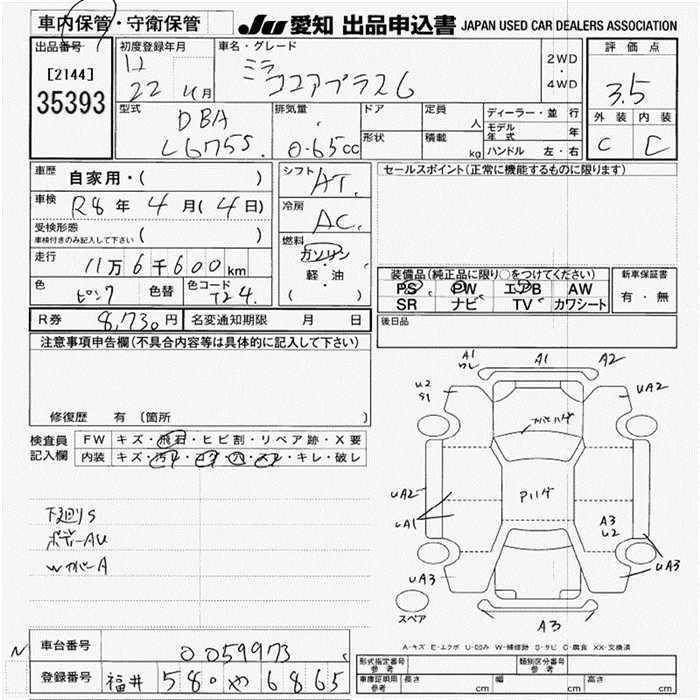 車内保管・守衛保管
JU 愛知 出品申込書 JAPAN USED CAR DEALERS ASSOCIATION
出品番号
[2144]
35393
初度登録年月
22 年 4 月
車名・グレード
ミラ
ココアプラスG
2WD
・
4WD
評価点
3.5
外装 内装
C C
型式
DBA
L675S
排気量
0.65cc
ドア
形状
定員
人
積載
kg
ディーラー・並行
モデル年式 年
ハンドル 左・右
車歴 自家用・( )
車検 R8年 4月(4日)
受検形態
車検付きのみ記入して下さい ( )
走行 11万6千600km
色 ピンク 色替 色コード T24
シフト AT
冷房 AC
燃料
ガソリン
・
軽・油
( )
セールスポイント(正常に機能するものに限ります)
装備品(純正品に限り○をつけてください)
PS PW エアB AW
SR ナビ TV カワシート
新車保証書
有・無
後日品
R券 8,730円 名変通知期限 月 日
注意事項申告欄(不具合内容等は具体的に記入して下さい)
修復歴 有 (箇所 )
検査員
記入欄
FW キズ・飛石・ヒビ割・リペア跡・X要
内装 キズ・汚れ・コゲ・穴・スレ・キレ・破レ
下廻りS
ボデーAU
WカバーA
A1 A1 A2
U2
S1
UA2
Pハゲ
UA2
UA1
A3
U2
UA3
UA3
A3
スペア
A-キズ E-エクボ U-凹み W-補修跡 S-サビ C-腐食 XX-交換済
車台番号 0059973
登録番号 福井 580 や 6865
形式指定番号
参考
類別区分番号
参考
車庫証明用
参考
長さ cm 幅 cm 高さ cm